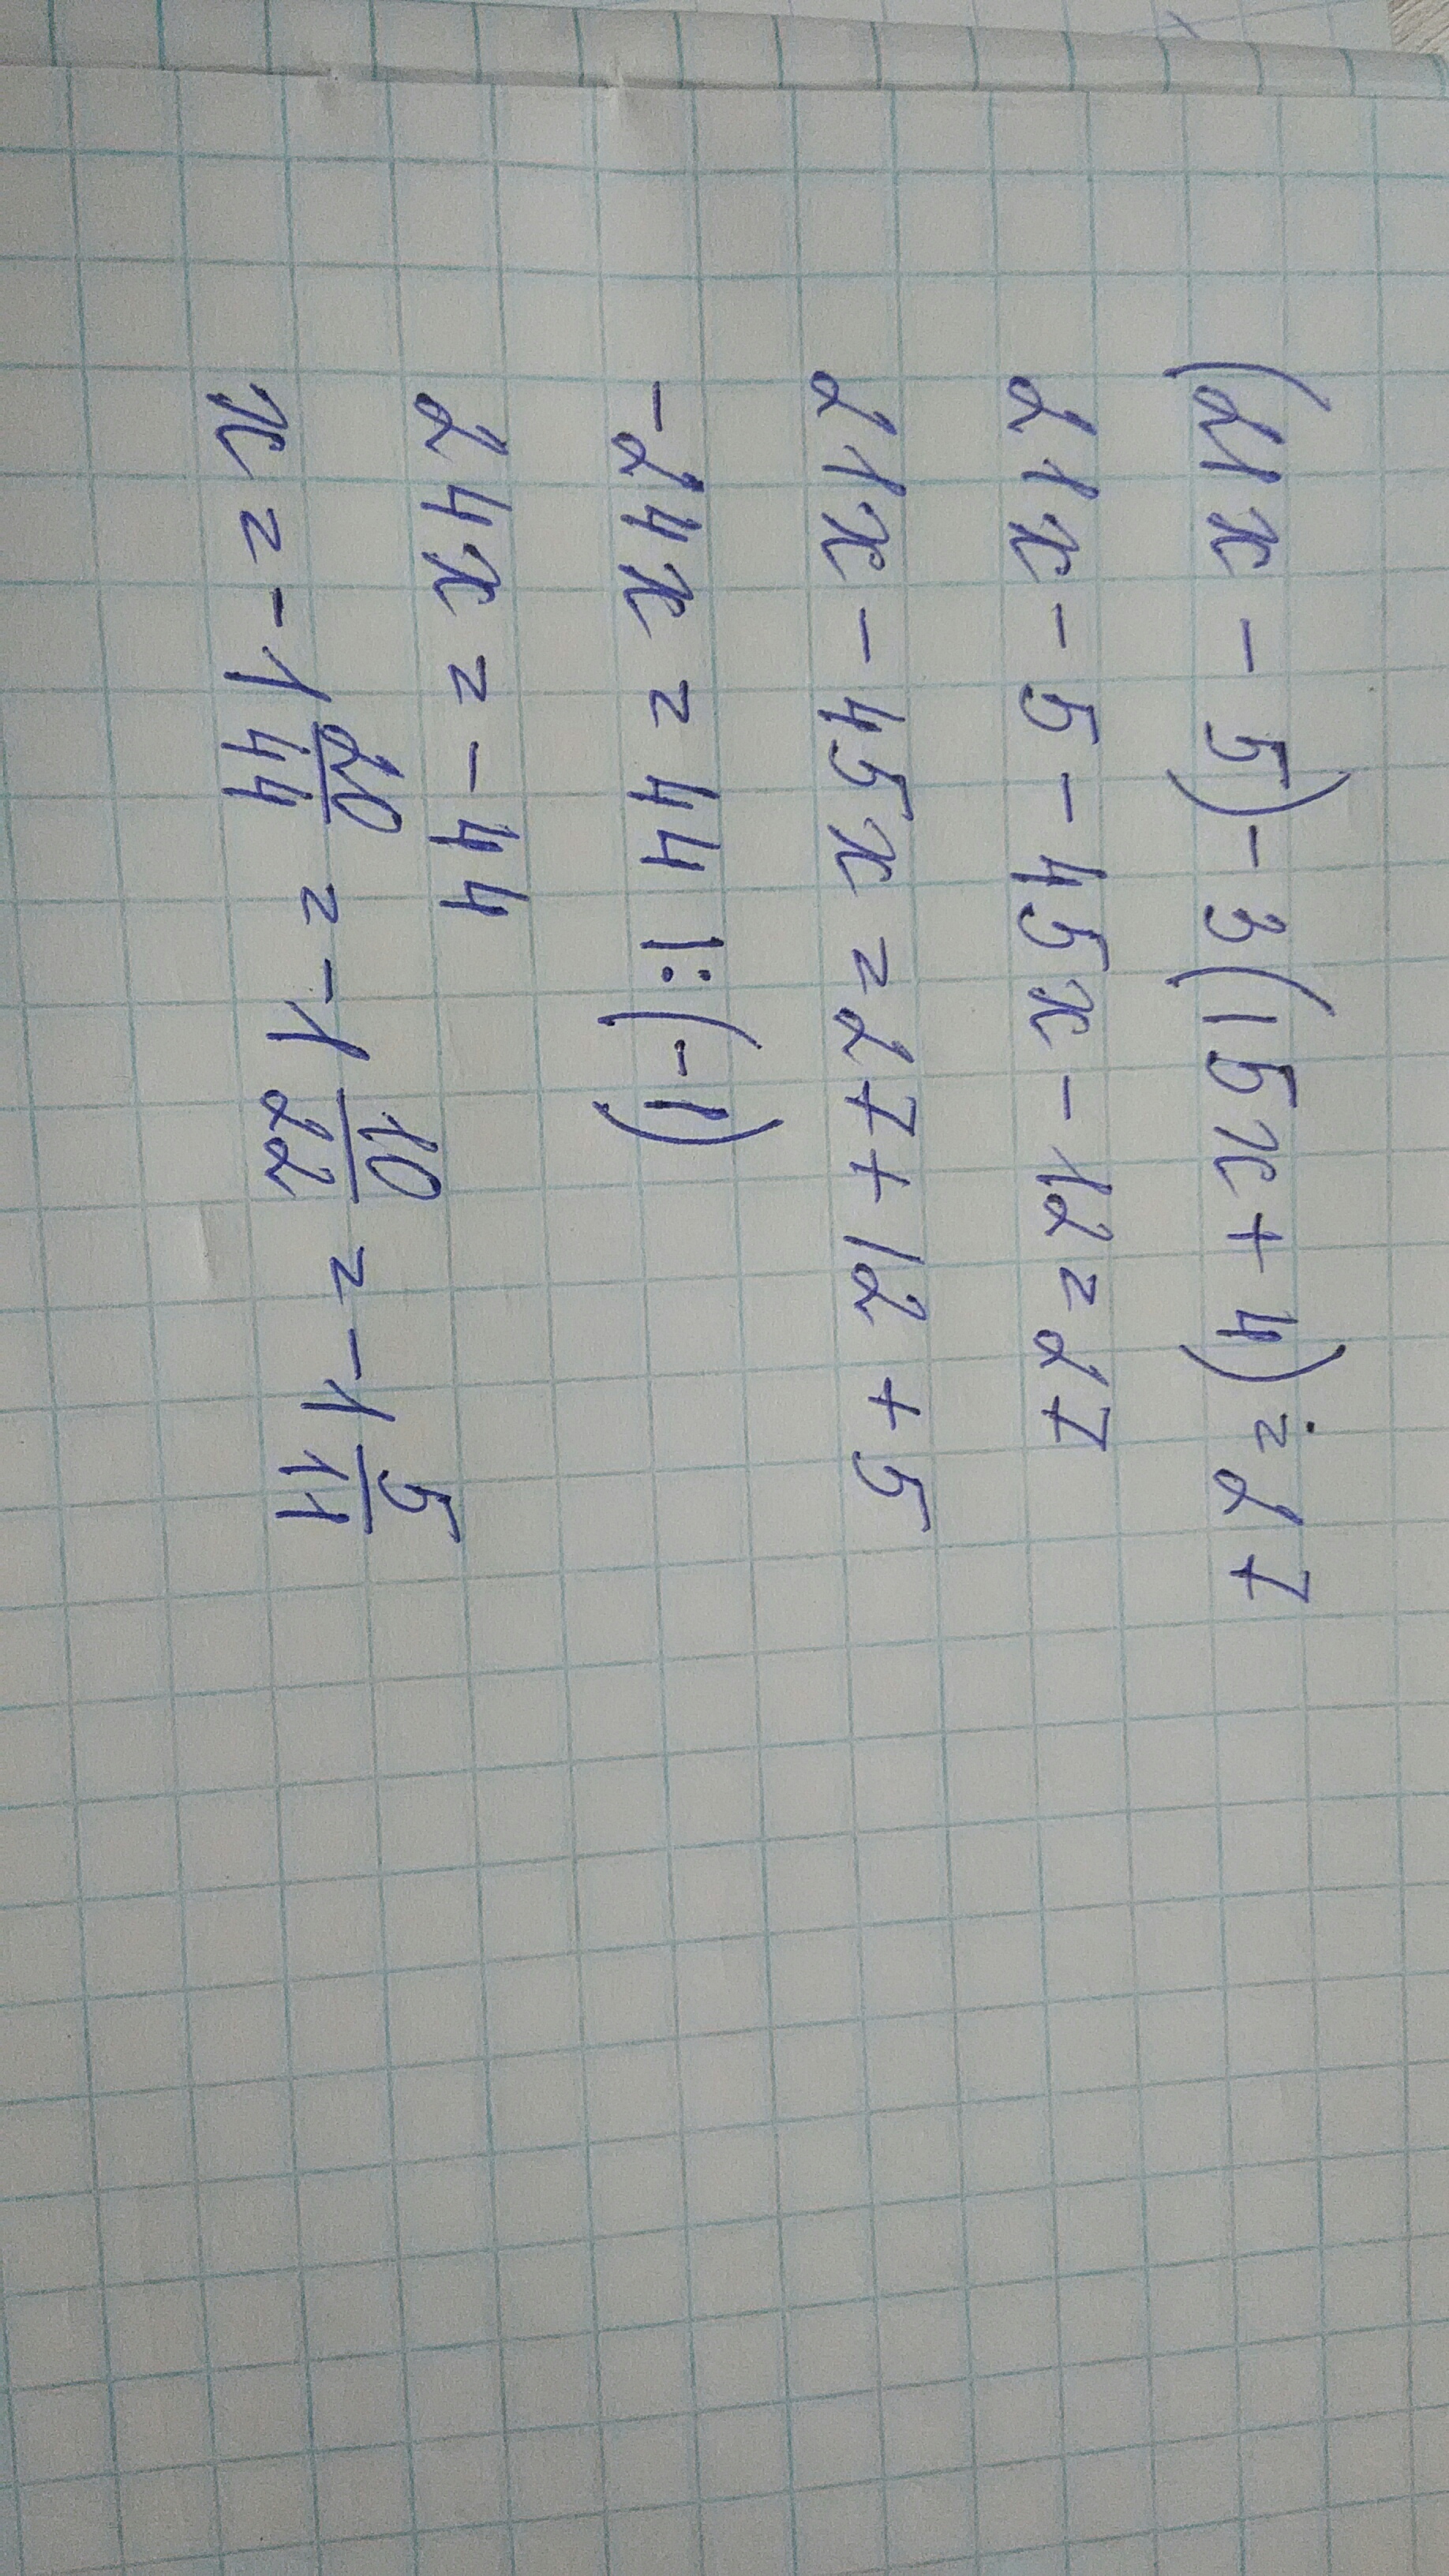 (21x - 5) - 3(15x + 4) = 27
21x - 5 - 45x - 12 = 27
21x - 45x = 27 + 12 + 5
-24x = 44 |:(-1)
24x = -44
x = -1 20/44 = -1 10/22 = -1 5/11